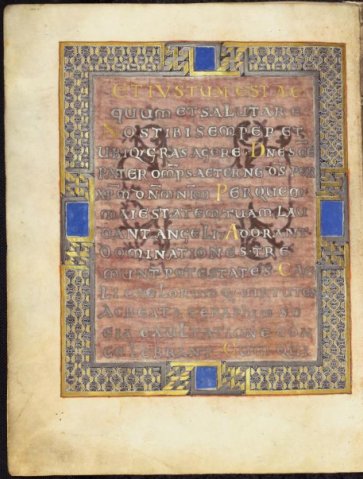 ETIUSTUMESTAE
QUUMETSALUTARE
NOSTIBISEMPERET
UBIQ GRASAGERE DNESCE
PATEROMPSAETERNEDSPER
XPMDNMNRM PERQUEM
MAIESTATEMTUAMLAU
DANTANGELI ADORANT
DOMINATIONES TRE
MUNTPOTESTATES CAE
LI CAELORUMQ UIRTUTES
ACBEATASERAPHIM SO
CIAEXULTATIONECON